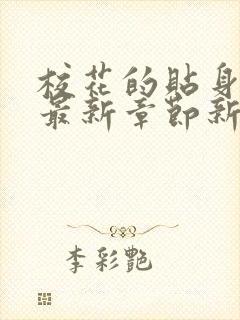 校花的贴身
最新章节新
李彩艷